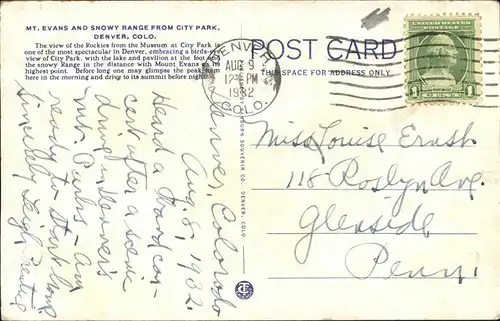 MT. EVANS AND SNOWY RANGE FROM CITY PARK,
DENVER, COLO.
The view of the Rockies from the Museum at City Park is
one of the most spectacular in Denver, embracing a birds-eye
view of City Park, with the lake and pavilion at the foot and
the snowy Range in the distance with Mount Evans as its
highest point. Before long one may glimpse the peak from
here in the morning and drive to its summit before night.
Denver, Colorado
Aug. 8, 1932.
Heard a band con-
cert after a scenic
drive in Denver's
Mt. Parks - Am
ready to start home
Sincerely, Leigh
SOUVENIR CO. DENVER, COLO.
POST CARD
THIS SPACE FOR ADDRESS ONLY.
DENVER
AUG 9
12 PM
1932
COLO.
UNITED STATES
1 1
CENTS
Miss Louise Ernst
118 Roslyn Ave.
Glenside
Penn.